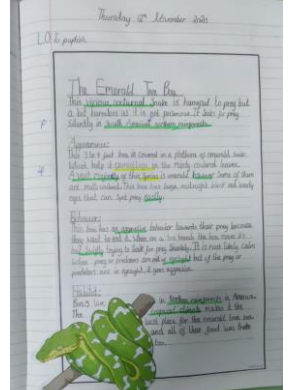 Thursday 12th November 2020
L.O. to
The Emerald Tree Boa
This vicious nocturnal snake is harmful to prey but
a bit harmless as it is not poisonous. It looks for prey
silently in South America rainforests.
Appearance:
This 5 to 6 foot boa is covered in a of emerald
Which help it camouflage in the leaves.
A vast majority of this is emerald Some of them
are This boa has huge midnight black and beady
eyes that can spot prey easily.
Behaviour:
This boa has an aggressive behavior towards their prey because
they want to eat it. When on a tree branch the boa move its
trying to look for prey. It is most likely calm
when prey or predators are not in eyesight but if the prey or
predators are in eyesight, it goes aggressive.
Habitat:
Boa's live in rainforests in America.
The tropical climate makes it the
best place for the emerald tree boa
and all of their food